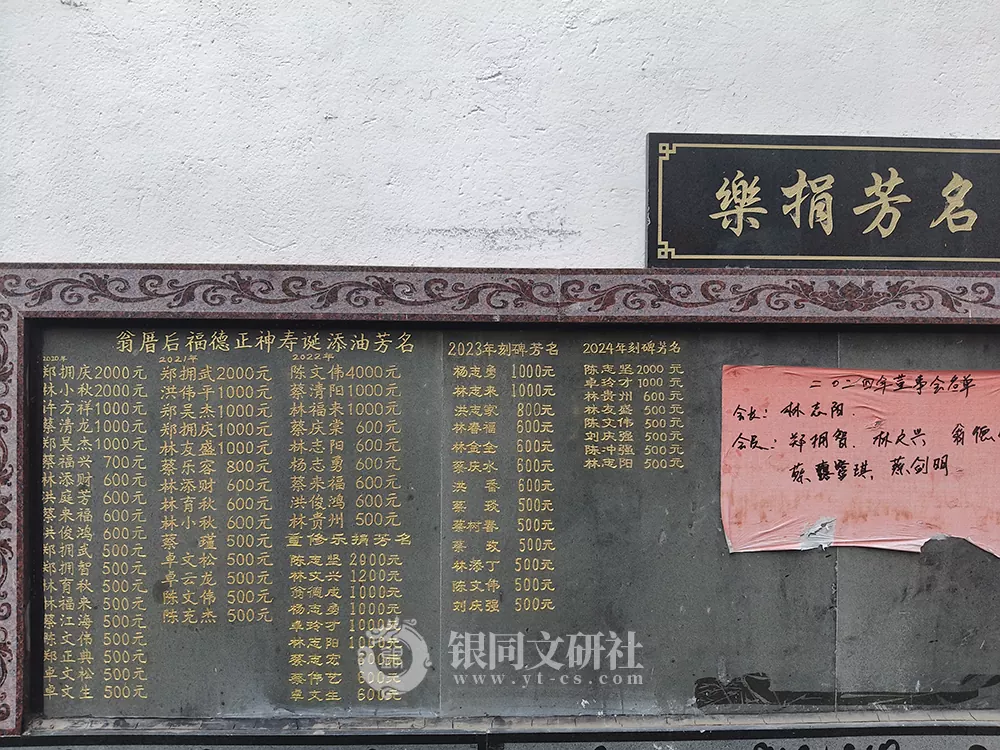 樂捐芳名
翁厝后福德正神寿诞添油芳名
2020年
郑拥庆2000元
林小秋2000元
许方祥1000元
蔡清龙1000元
郑昊杰1000元
蔡福兴 700元
林添财 600元
洪庭芳 600元
蔡来福 600元
洪俊鸿 600元
郑拥武 500元
郑拥智 500元
林育秋 500元
林福来 500元
蔡江海 500元
陈文伟 500元
郑正典 500元
卓文松 500元
卓文生 500元
2021年
郑拥武2000元
洪伟平1000元
郑昊杰1000元
郑拥庆1000元
林友盛1000元
蔡乐容 800元
林添财 600元
林育秋 600元
林小秋 600元
蔡瑾 500元
卓文松 500元
卓云龙 500元
陈文伟 500元
陈充杰 500元
2022年
陈文伟4000元
蔡清阳1000元
林福来1000元
蔡庆棠 600元
林志阳 600元
杨志勇 600元
蔡来福 600元
洪俊鸿 600元
林贵州 500元
重修乐捐芳名
陈志坚 2900元
林文兴 1200元
翁德成 1000元
杨志勇 1000元
卓玲才 1000元
林志阳 1000元
蔡志宏 600元
蔡伟艺 600元
卓文生 600元
2023年刻碑芳名
杨志勇 1000元
林志来 1000元
洪志家 800元
林春福 600元
林金全 600元
蔡庆水 600元
洪香 600元
蔡琰 500元
蔡树春 500元
蔡玫 500元
林添丁 500元
陈文伟 500元
刘庆强 500元
2024年刻碑芳名
陈志坚2000 元
卓玲才1000 元
林贵州 600 元
林友盛 500 元
陈文伟 500元
刘庆强 500元
陈冲强 500元
林志阳 500元
二〇二四年董事会名单
会长：林志阳
会员：郑拥智、林文兴 翁德
琪、蔡剑明
银同文研社
www.yt-cs.com